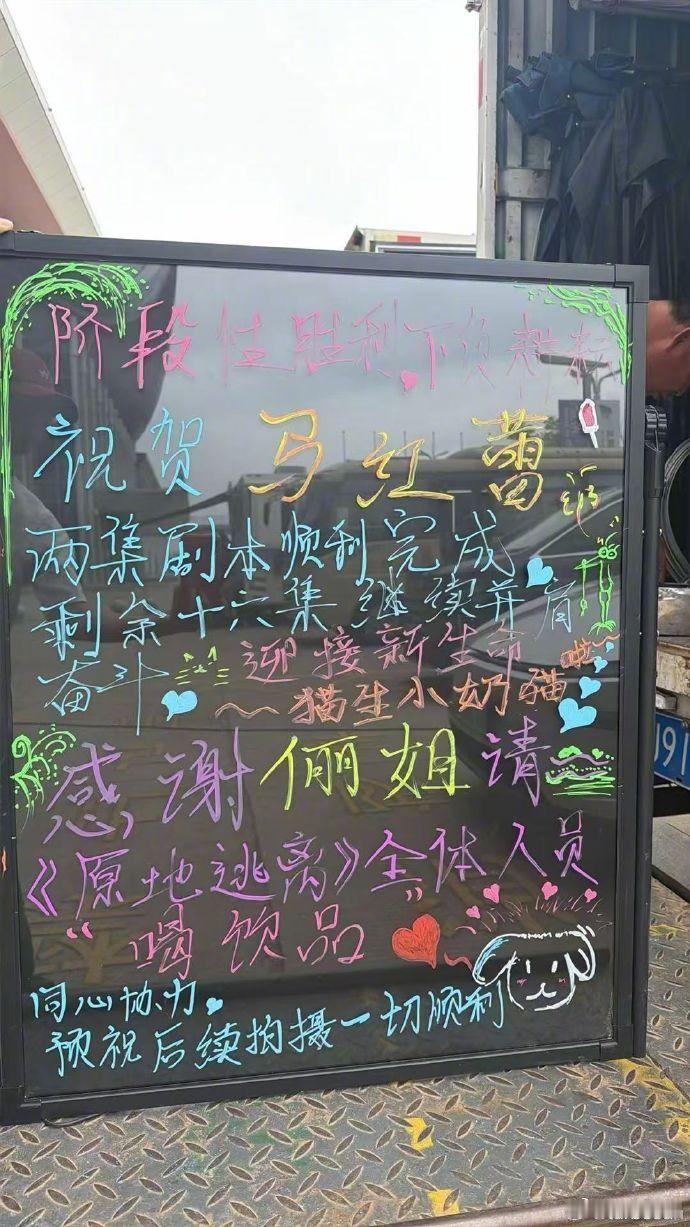 阶段性胜利,不负
祝贺马红蕾
两集剧本顺利完成
剩余十六集继续并肩
奋斗 迎接新生命 啦~
~猫生小奶猫
感谢俪姐请~
《原地逃离》全体人员
“喝饮品”
同心协力,
预祝后续拍摄一切顺利